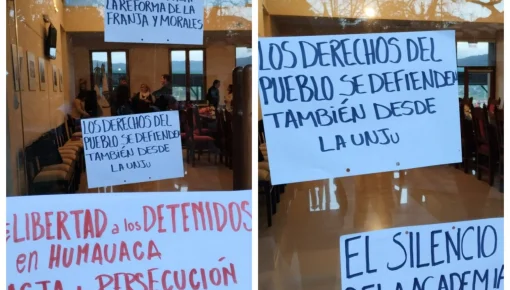 LA REFORMA DE LA
FRANJA Y MORALES
LOS DERECHOS DEL
PUEBLO SE DEFIENDEN
TAMBIÉN DESDE
LA UNJu
LIBERTAD a los DETENIDOS
en HUMAUACA
PERSECUCIÓN
LOS DERECHOS DEL
PUEBLO SE DEFIENDEN
TAMBIÉN DESDE
LA UNJu
EL SILENCIO
ACADEMIA